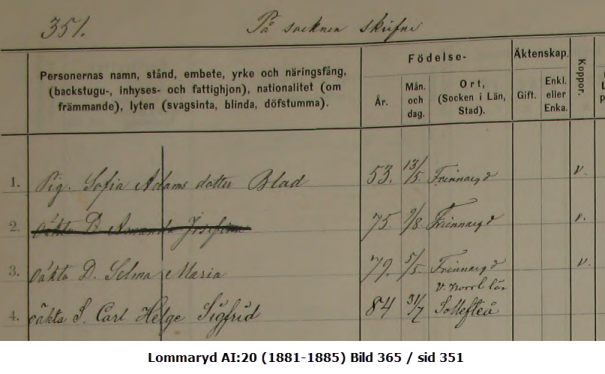 351. På socknen skrifne
Personernas namn, stånd, embete, yrke och näringsfång, (backstugu-, inhyses- och fattighjon), nationalitet (om främmande), lyten (svagsinta, blinda, döfstumma).
Födelse-
År.
Mån. och dag.
Ort, (Socken i Län, Stad).
Äktenskap.
Gift.
Enkl. eller Enka.
Koppor.
1. Pig. Sofia Adams dotter Blad 53. 13/5 Frinnaryd v.
2. oäkta D. Amanda Josefina 75 9/8 Frinnaryd v.
3. oäkta D. Selma Maria 79. 5/5 Frinnaryd v.
V. Norrl. län
4. oäkta S. Carl Helge Sigfrid 84 31/7 Sollefteå
Lommaryd AI:20 (1881-1885) Bild 365 / sid 351